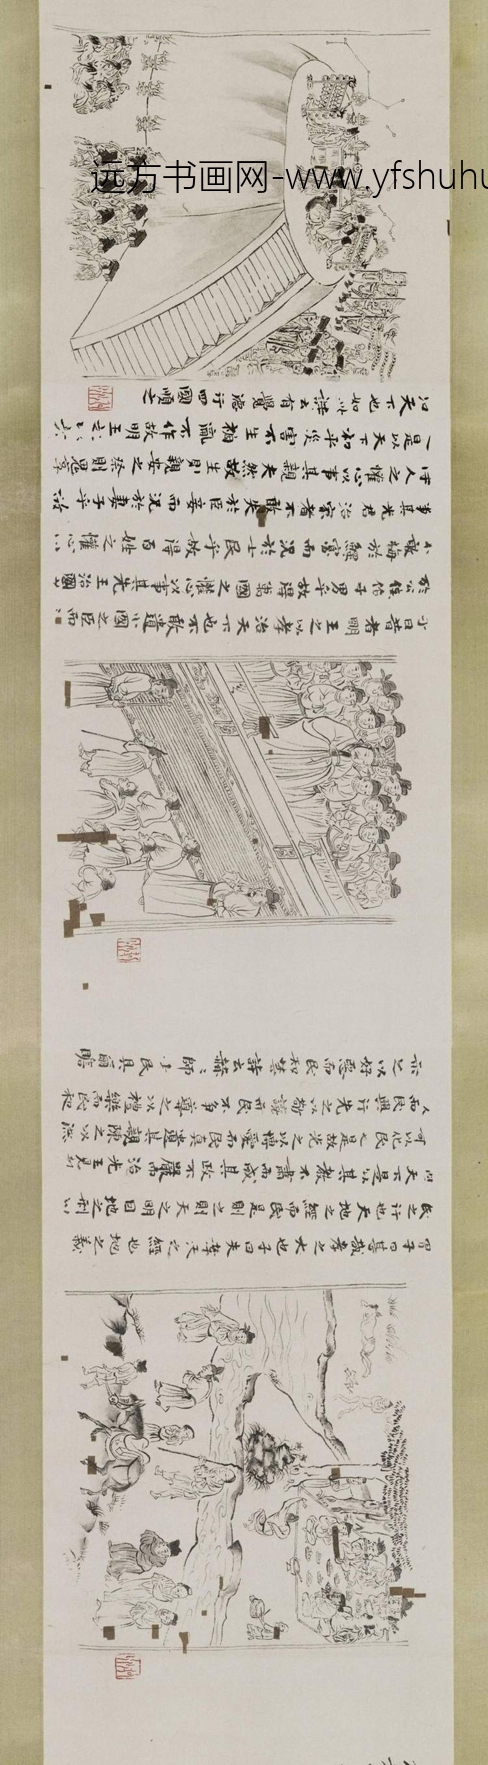 远方书画网-www.yfshuhu
子曰甚哉孝之大也子曰夫孝天之經也地之義
民之行也天地之經而民是則之則天之明因地之利以
天下是以其教不肅而成其政不嚴而治先王見教
可以化民也是故先之以博愛而民莫遺其親陳之以德
而民興行先之以敬讓而民不爭導之以禮樂而民和
示之以好惡而民知禁詩云赫〻師尹民具爾瞻
子曰昔者明王之以孝治天下也不敢遺小國之臣而
於公侯伯子男乎故得萬國之懽心以事其先王治國
敢侮於鰥寡而況於士民乎故得百姓之懽心以
事其先君治家者不敢失於臣妾而況於妻子乎故
人之懽心以事其親夫然故生則親安之祭則鬼享
是以天下和平災害不生禍亂不作故明王之以
天下也如此詩云有覺德行四國順之